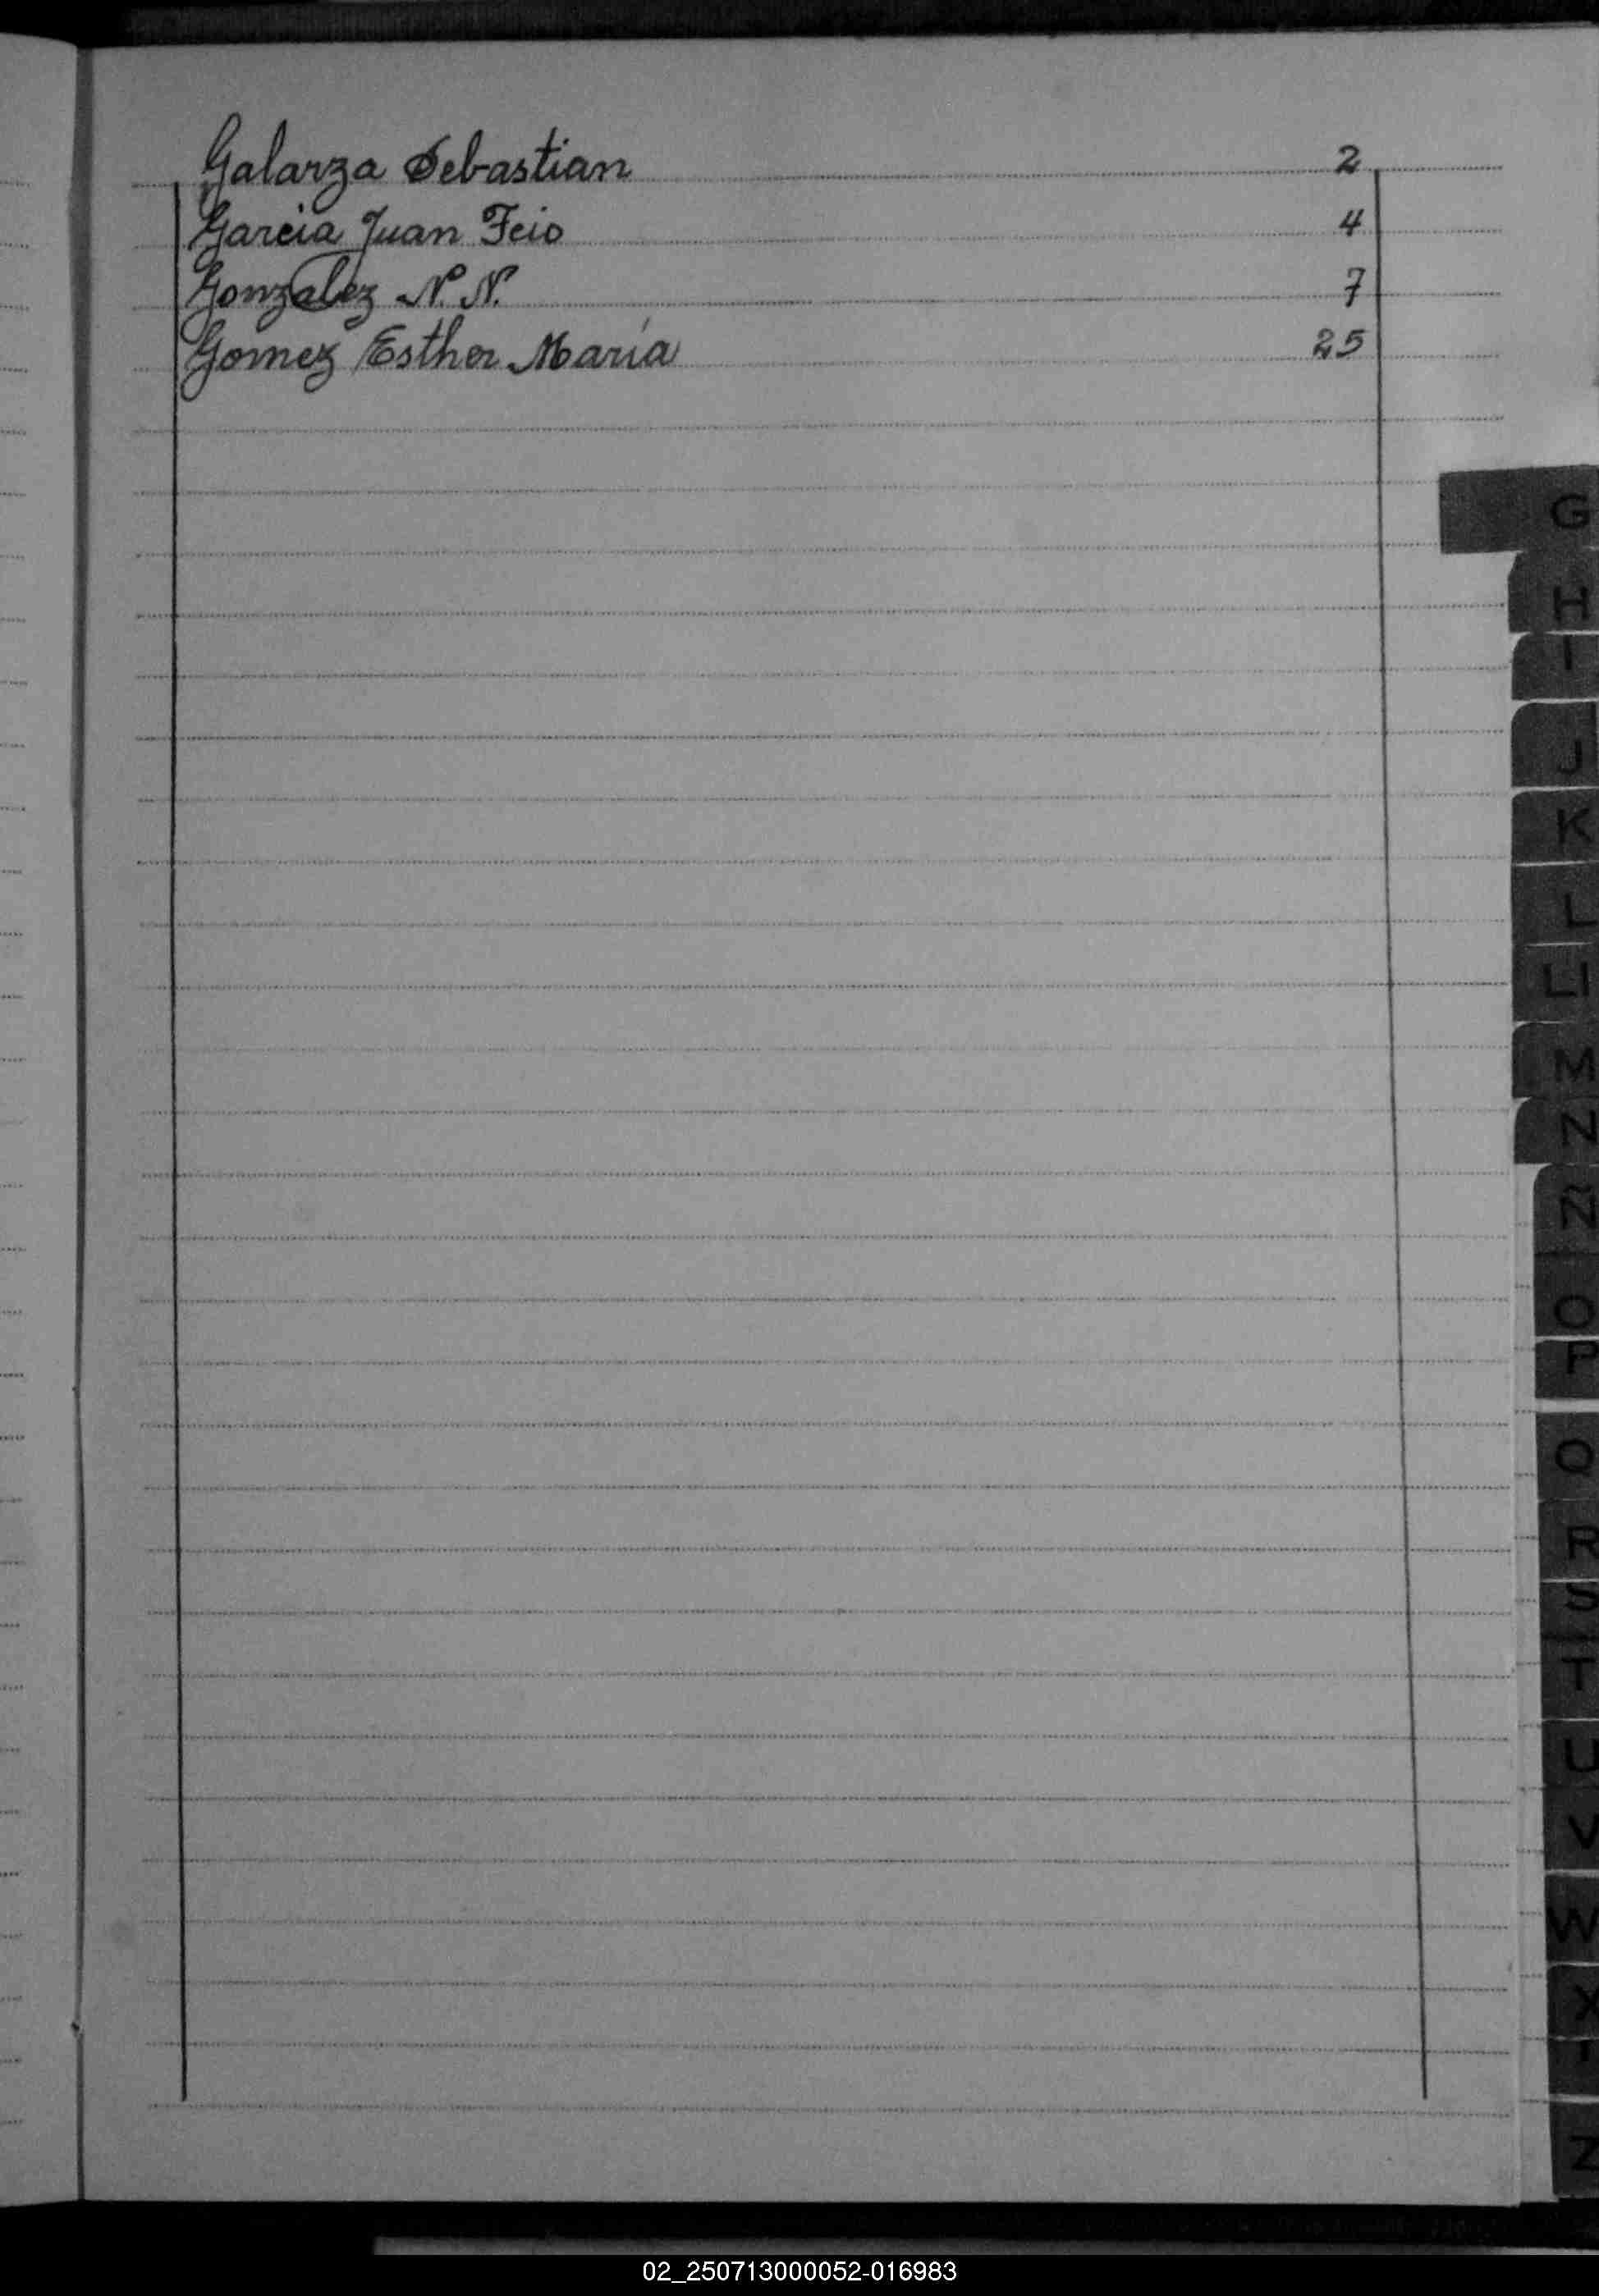 Galarza Sebastian 2
Garcia Juan Feio 4
Gonzalez N. N. 7
Gomez Esther María 25
G
H
I
J
K
L
Ll
M
N
Ñ
O
P
Q
R
S
T
U
V
W
X
Z
02_250713000052-016983